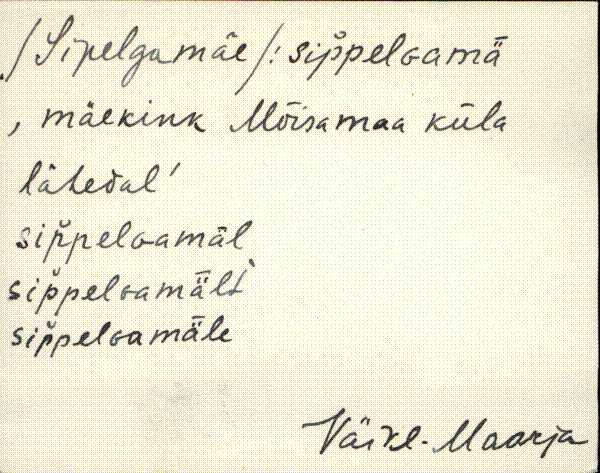 /Sipelgamäe/: sip̆pelɢamǟ
, mäekink Mõisamaa küla
lähedal'
sip̆pelɢamǟl
sip̆pelɢamǟlt
sip̆pelɢamǟle
Väike-Maarja